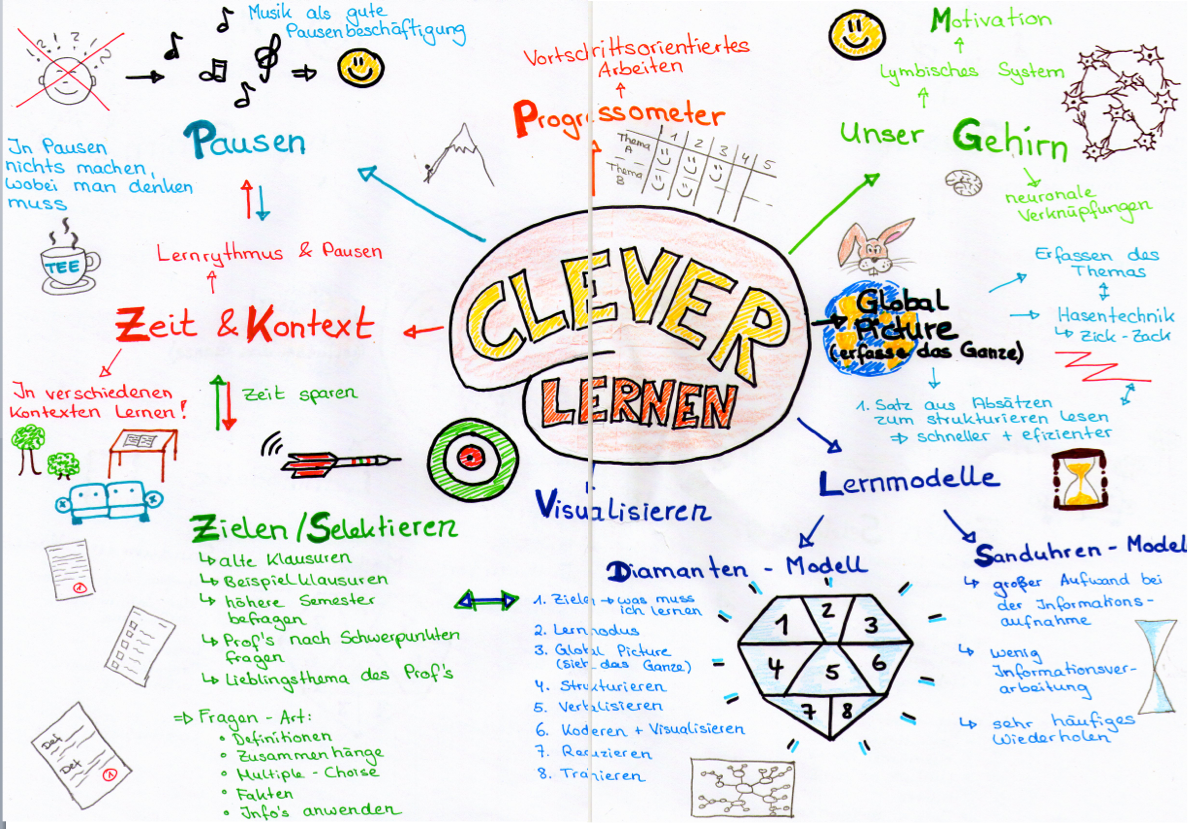 Musik als gute
Pausenbeschäftigung
Pausen
In Pausen
nichts machen,
wobei man denken
muss
TEE
Lernrythmus & Pausen
Zeit & Kontext
In verschiedenen
Kontexten Lernen!
Zeit sparen
Vortschrittsorientiertes
Arbeiten
Progressometer
Thema A 1 2 3 4 5
Thema B
Motivation
Lymbisches System
unser Gehirn
neuronale
Verknüpfungen
CLEVER
LERNEN
Global
Picture
(erfasse das Ganze)
Erfassen des
Themas
Hasentechnik
Zick-Zack
1. Satz aus Absätzen
zum strukturieren lesen
⇒ schneller + efizienter
Lernmodelle
Visualisieren
Zielen/Selektieren
alte Klausuren
Beispielklausuren
höhere Semester
befragen
Prof's nach Schwerpunkten
fragen
Lieblingsthema des Prof's
⇒ Fragen-Art:
° Definitionen
° Zusammenhänge
° Multiple-Choise
° Fakten
° Info's anwenden
1
Def
Def
1
Diamanten - Modell
1. Zielen → was muss
ich lernen
2. Lernmodus
3. Global Picture
(sieh das Ganze)
4. Strukturieren
5. Verbalisieren
6. Kodieren + Visualisieren
7. Reduzieren
8. Trainieren
1 2 3
4 5 6
7 8
Sanduhren - Modell
großer Aufwand bei
der Informations-
aufnahme
wenig
Informationsver-
arbeitung
sehr häufiges
Wiederholen